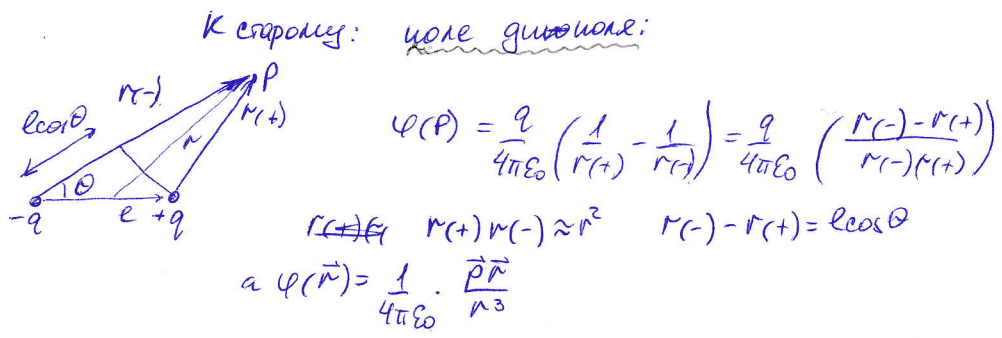 К старому: поле диполя:
P
r(-)
r(+)
lcosθ
r
θ
-q l +q
φ(P) = q/4πε₀ (1/r(+) - 1/r(-)) = q/4πε₀ (r(-) - r(+)/r(-)r(+))
r(+)r(-) ≈ r² r(-) - r(+) = lcosθ
а φ(r⃗) = 1/4πε₀ · p⃗r⃗/r³